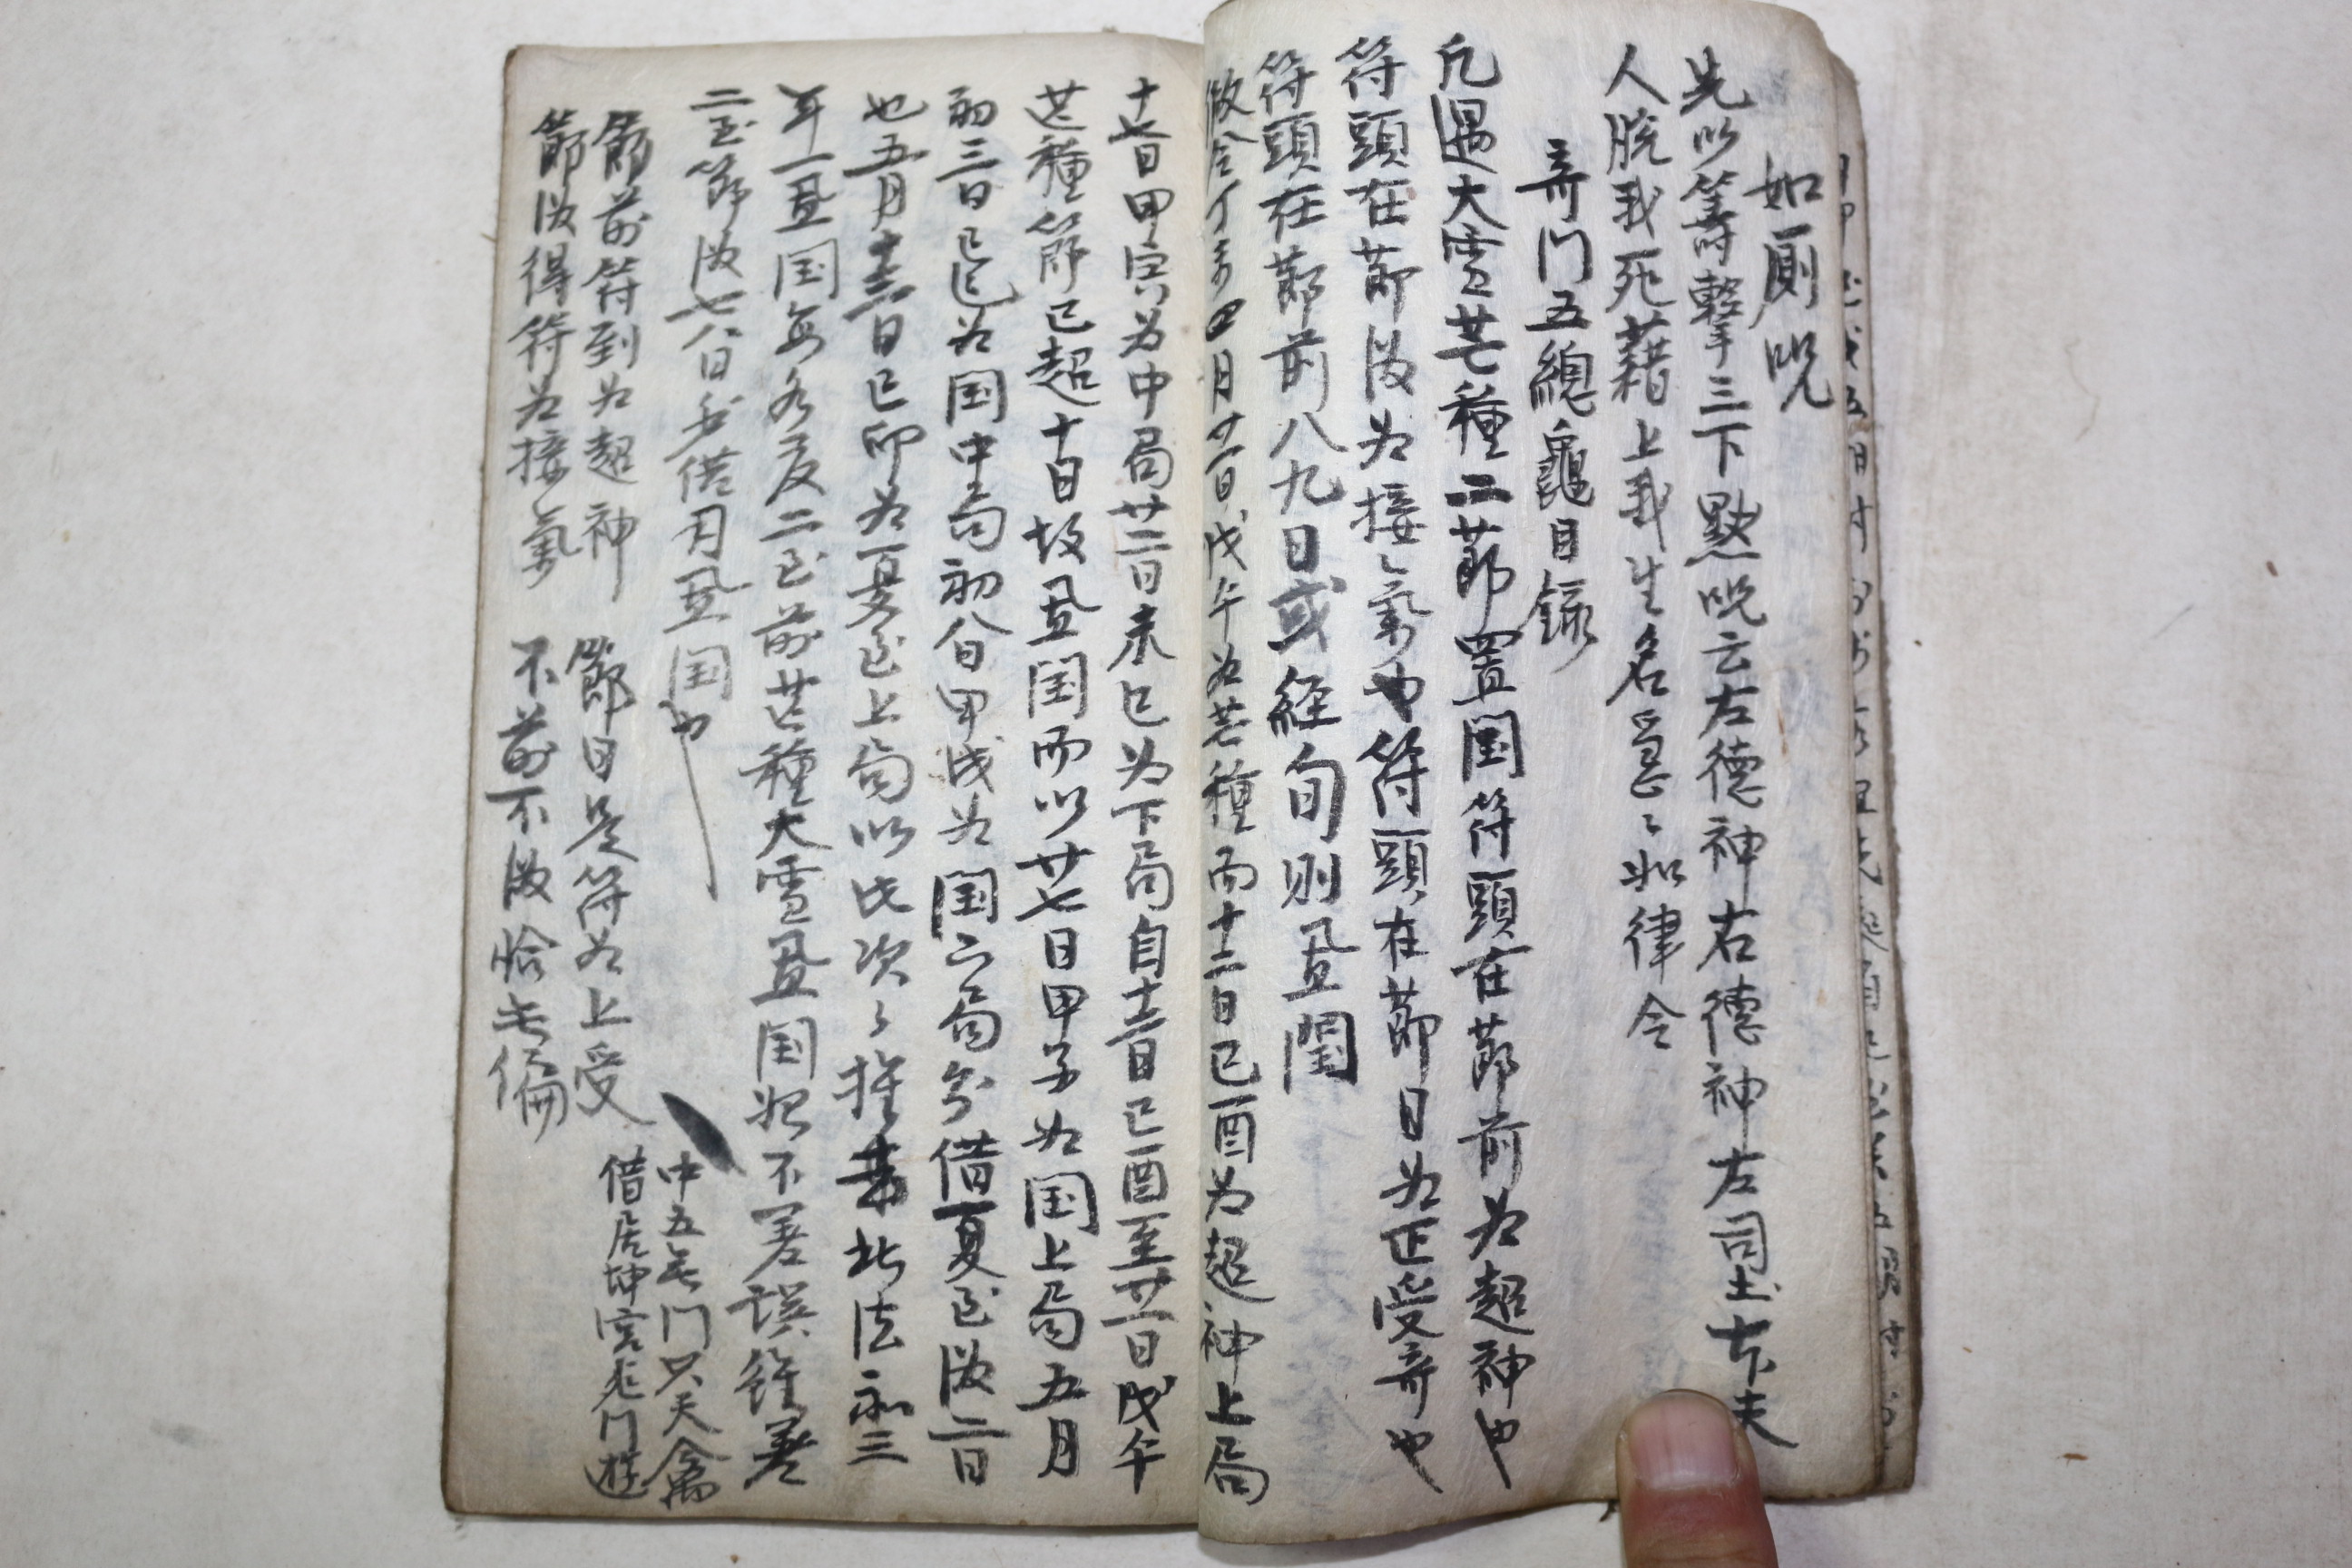 如厠呪
先以籌擊三下黙呪云左德神右德神左司土大夫
人脫我死藉上我生名急〻如律令
奇门五總龜目錄
凡遇大雪芒種二節置閏符頭在節前为超神也
符頭在節後为接〻氣也符頭在節日为正受奇也
符頭在節前八九日或経旬則置閏
假令丁亥四月廿一日戊午为芒種而十二日己酉为超神上局
十七日甲寅为中局廿二日未已为下局自十二日己酉至廿一日戊午
芒種節已超十日故置閏而以廿七日甲子为閏上局五月
初三日己巳为閏中局初八日甲戌为閏下局分借夏至後二日
也五月十三日己卯为夏至上局以此次〻推去此法和三
年一置閏每多在二至前芒種大雪置閏始不差誤錐差
二至節後七八日分借月置閏也
節前符到为超神 節日是符为上受
節後得符为接〻氣 不前不後恰无偏
中五无门只天禽
借居坤宮死门遊